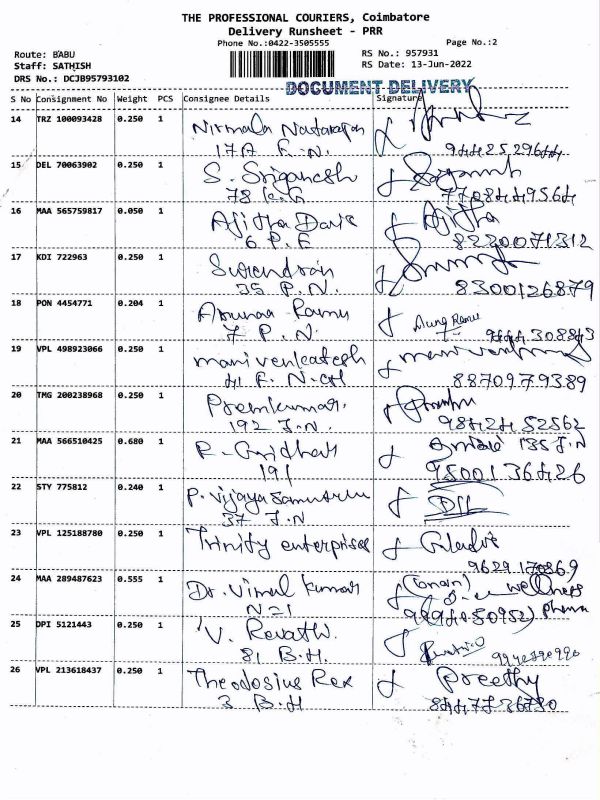 THE PROFESSIONAL COURIERS, Coimbatore
Delivery Runsheet - PRR
Phone No.:0422-3505555 Page No.:2
Route: BABU RS No.: 957931
Staff: SATHISH RS Date: 13-Jun-2022
DRS No.: DCJB95793102
DOCUMENT DELIVERY
S No Consignment No Weight PCS Consignee Details Signature
14 TRZ 100093428 0.250 1 Nirmala Natarajan
17A F.N.
15 DEL 70063902 0.250 1 S. Sriganesh
78 K.G 7708449564
16 MAA 565759817 0.050 1 Ajitha Ajitha
6 P.F 8220071312
17 KDI 722963 0.250 1 Surendran
35 P.N. 8300126879
18 PON 4454771 0.204 1 Arunaa Ramu
7 P.N. 9444308843
19 VPL 498923066 0.250 1 manivenkatesh
41 F.N.
8870979389
20 TMG 200238968 0.250 1 Premkumar.
192 J.N. 9842452562
21 MAA 566510425 0.680 1 135 J.N
191
22 STY 775812 0.240 1 P. Vijaya
37 J.N
23 VPL 125188780 0.250 1 Trinity enterprises
9629170869
24 MAA 289487623 0.555 1 Dr. Vimal Kumar wellness
pharma
25 DPI 5121443 0.250 1 V. Revathi.
81 B.H.
26 VPL 213618437 0.250 1 Theodosius Rex Preethy
3 B.H 8447736730